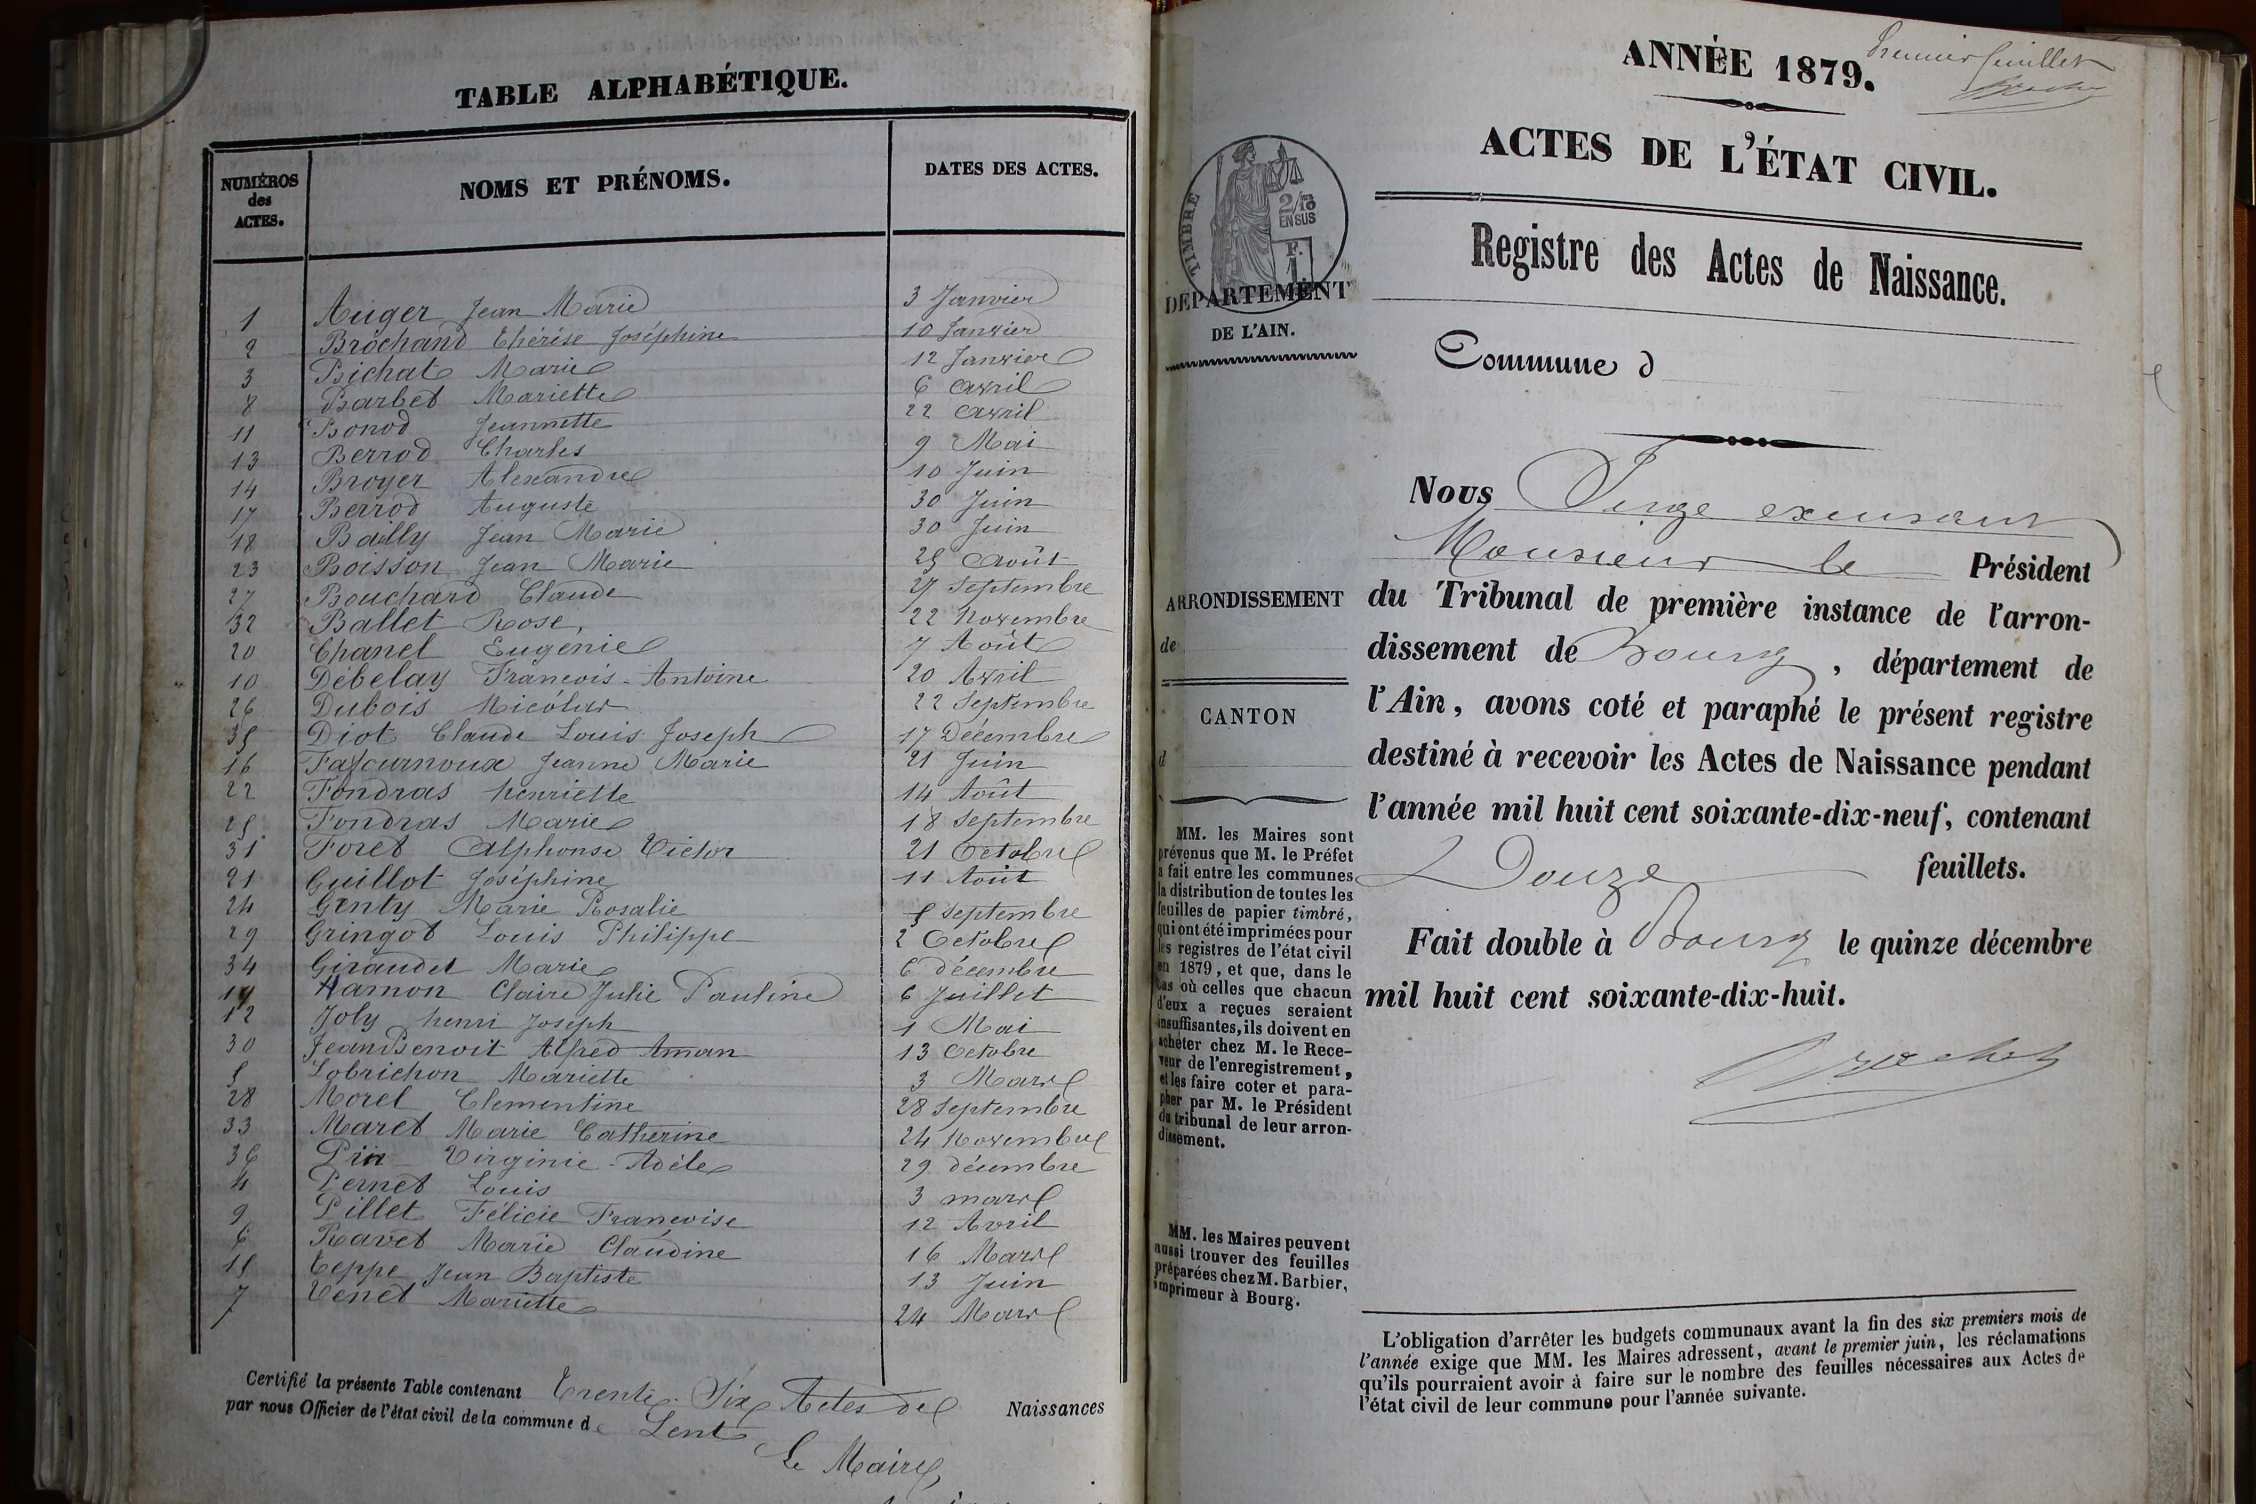 TABLE ALPHABÉTIQUE.
NUMÉROS
des
ACTES.
NOMS ET PRÉNOMS.
DATES DES ACTES.
1 Auger Jean Marie 3 Janvier
2 Brochand Thérèse Joséphine 10 Janvier
3 Bichat Marie 12 Janvier
8 Barbet Mariette 6 Avril
11 Bonod Jeannette 22 Avril
13 Berrod Charles 9 Mai
14 Broyer Alexandre 10 Juin
17 Berrod Auguste 30 Juin
18 Bailly Jean Marie 30 Juin
23 Boisson Jean Marie 25 Août
27 Bouchard Claude 27 Septembre
32 Ballet Rose, 22 Novembre
20 Chanel Eugénie 7 Août
10 Débelay François-Antoine 20 Avril
26 Dubois Nicolas 22 Septembre
35 Diot Claude Louis Joseph 17 Décembre
16 Jeanne Marie 21 Juin
22 Fondras henriette 14 Août
25 Fondras Marie 18 Septembre
31 Foret Alphonse Victor 21 Octobre
21 Guillot Joséphine 11 Août
24 Genty Marie Rosalie 5 Septembre
29 Gringot Louis Philippe 2 Octobre
34 Giraudet Marie 6 décembre
19 Hamon Claire Julie Pauline 6 Juillet
12 Joly henri Joseph 1 Mai
30 JeanBenoit Alfred Aman 13 Octobre
5 Lobrichon Mariette 3 Mars
28 Morel Clementine 28 Septembre
33 Maret Marie Catherine 24 Novembre
36 Pin Virginie-Adèle 29 décembre
4 Pernet Louis 3 mars
9 Pillet Félicie Françoise 12 Avril
6 Ravet Marie Claudine 16 Mars
15 Teppe Jean Baptiste 13 Juin
7 Venet Mariette 24 Mars
Certifié la présente Table contenant Trente-Six Actes de Naissances
par nous Officier de l'état civil de la commune de Lent
Le Maire,
Premier feuillet
ANNÉE 1879.
ACTES DE L'ÉTAT CIVIL.
Registre des Actes de Naissance.
TIMBRE
2/10
EN SUS
F.
1.
DÉPARTEMENT
DE L'AIN.
Commune d
ARRONDISSEMENT
de
CANTON
d
MM. les Maires sont
prévenus que M. le Préfet
a fait entre les communes
la distribution de toutes les
feuilles de papier timbré,
qui ont été imprimées pour
les registres de l'état civil
en 1879, et que, dans le
cas où celles que chacun
d'eux a reçues seraient
insuffisantes, ils doivent en
acheter chez M. le Rece-
veur de l'enregistrement,
et les faire coter et para-
pher par M. le Président
du tribunal de leur arron-
dissement.
MM. les Maires peuvent
aussi trouver des feuilles
préparées chez M. Barbier,
imprimeur à Bourg.
Nous Juge excusant
Monsieur le Président
du Tribunal de première instance de l'arron-
dissement de Bourg, département de
l'Ain, avons coté et paraphé le présent registre
destiné à recevoir les Actes de Naissance pendant
l'année mil huit cent soixante-dix-neuf, contenant
Douze feuillets.
Fait double à Bourg le quinze décembre
mil huit cent soixante-dix-huit.
L'obligation d'arrêter les budgets communaux avant la fin des six premiers mois de
l'année exige que MM. les Maires adressent, avant le premier juin, les réclamations
qu'ils pourraient avoir à faire sur le nombre des feuilles nécessaires aux Actes de
l'état civil de leur commune pour l'année suivante.